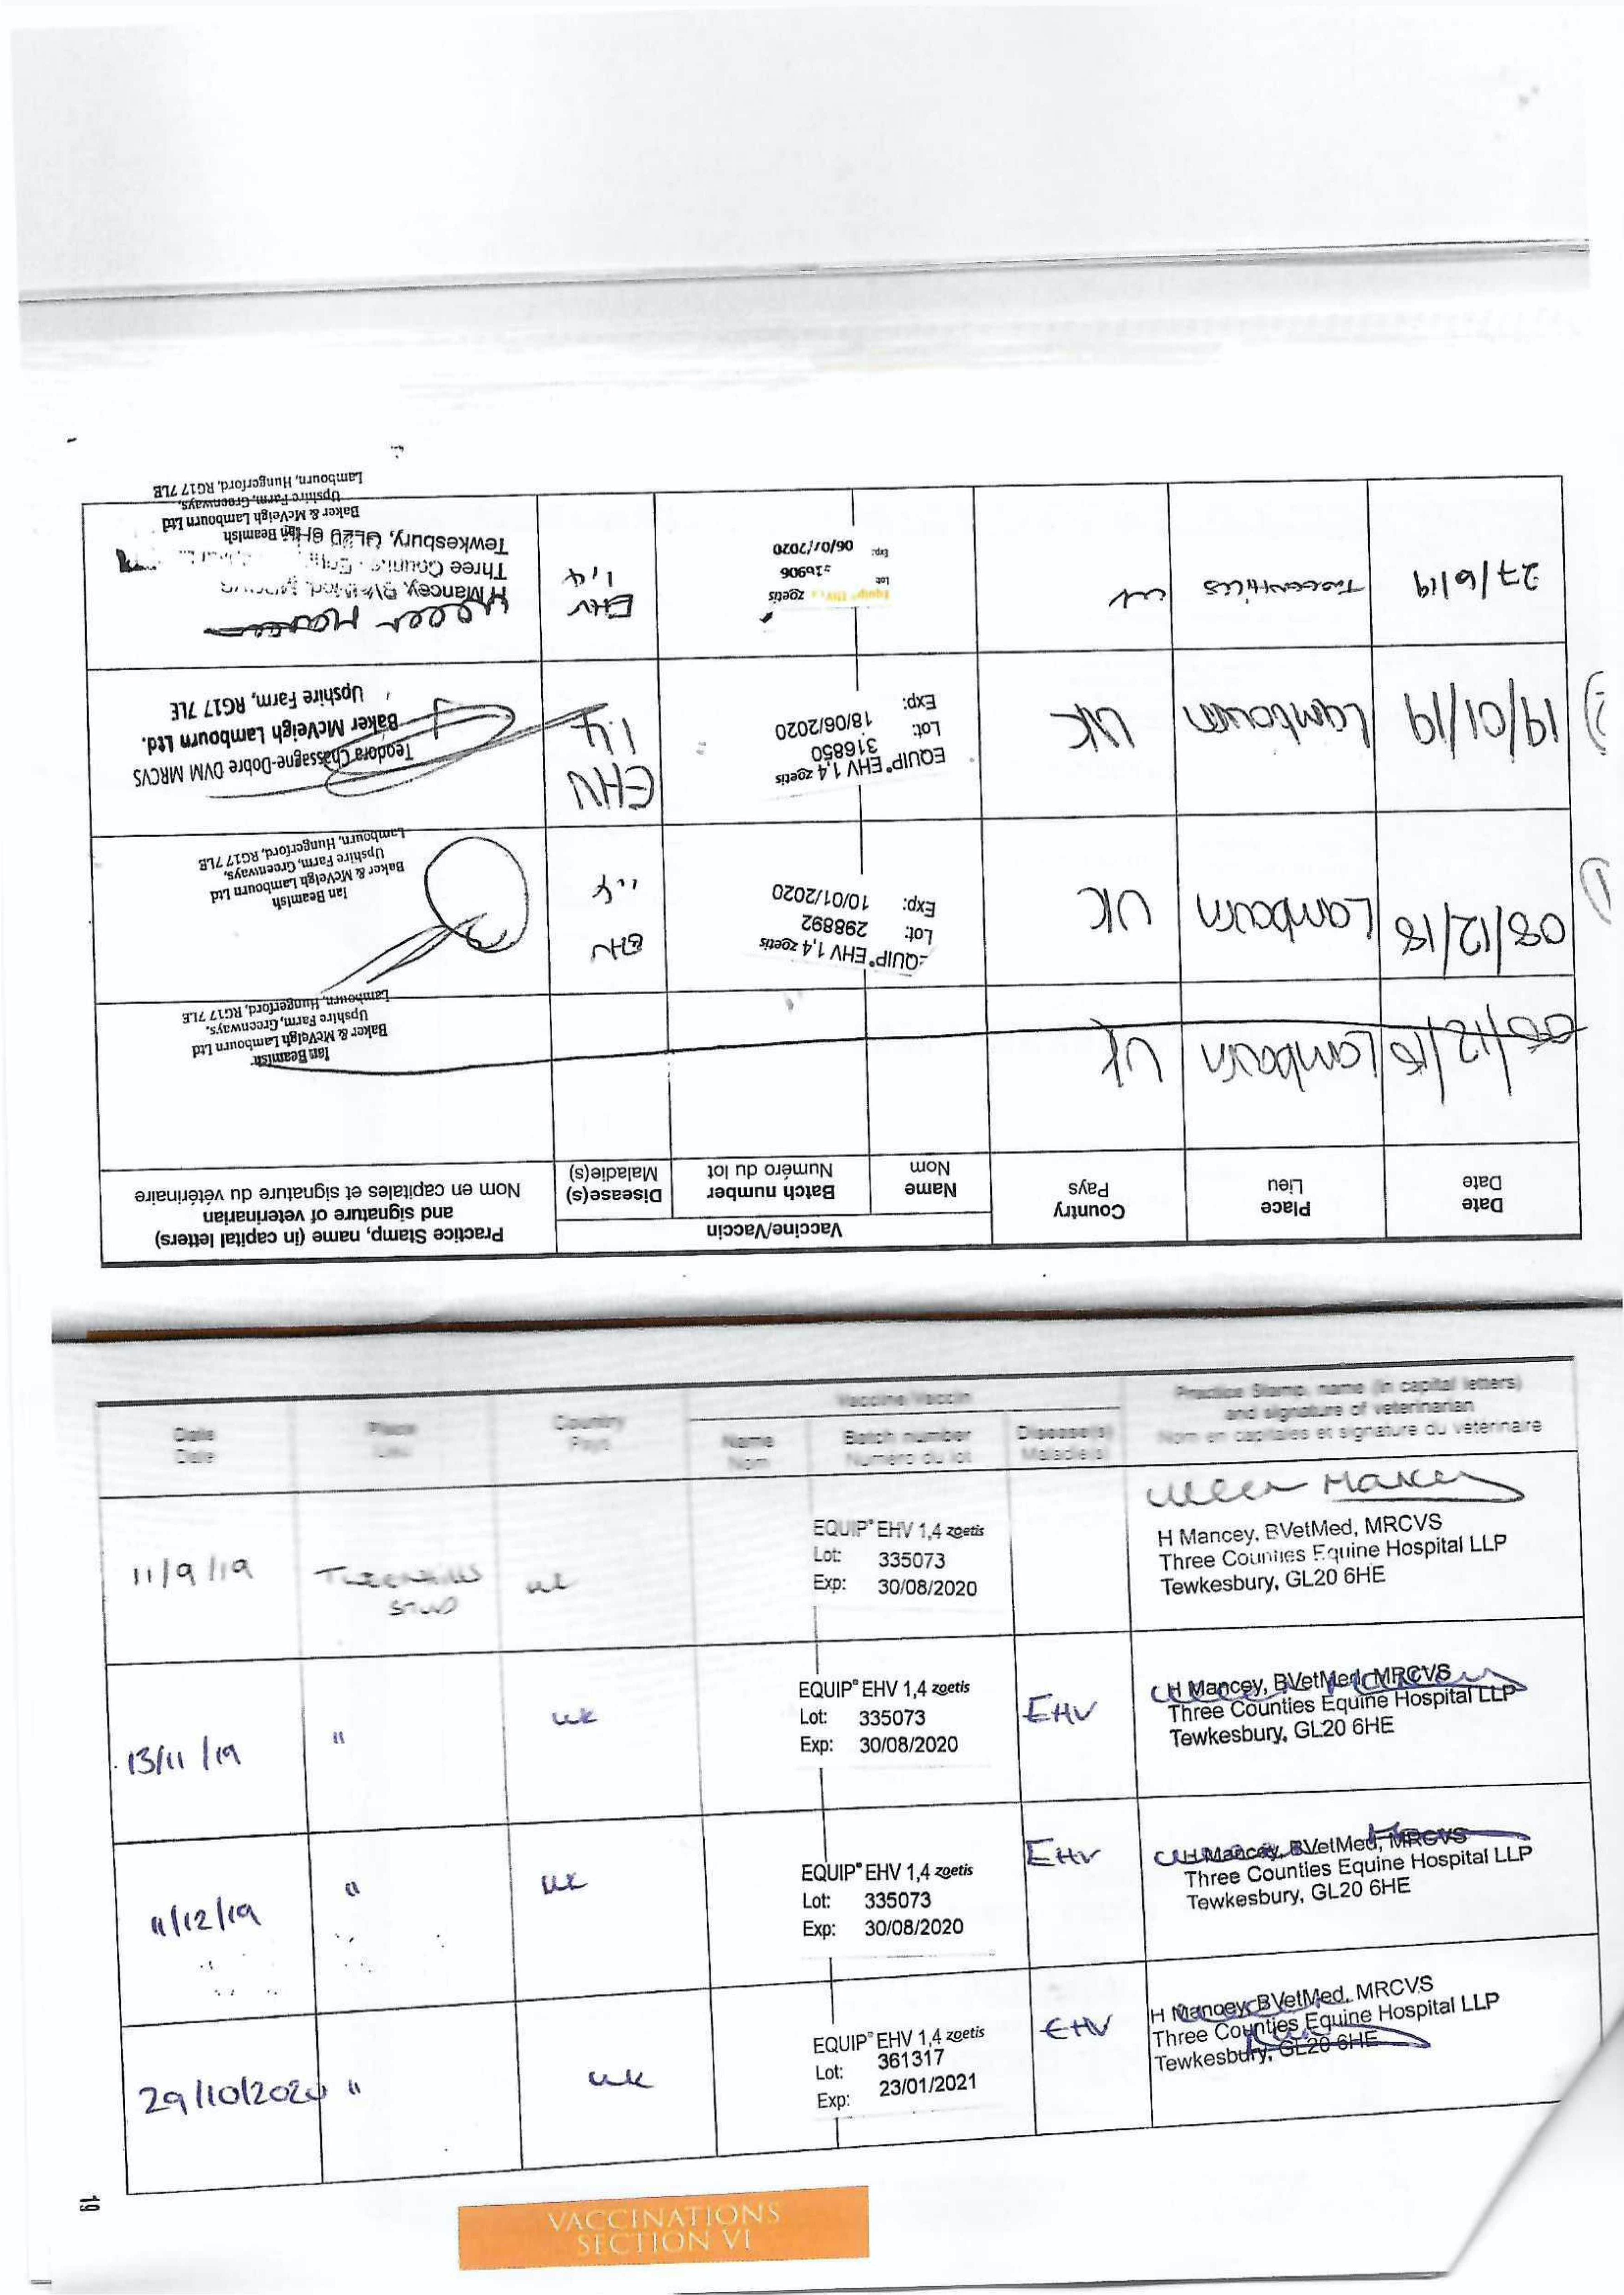 Date
Date
Place
Lieu
Country
Pays
Vaccine/Vaccin
Name
Nom
Batch number
Numéro du lot
Disease(s)
Maladie(s)
Practice Stamp, name (in capital letters)
and signature of veterinarian
Nom en capitales et signature du vétérinaire
Lambourn
UK
Ian Beamish
Baker & McVeigh Lambourn Ltd
Upshire Farm, Greenways,
Lambourn, Hungerford, RG17 7LE
1)
08/12/18
Lambourn
UK
EQUIP® EHV 1,4 zoetis
Lot: 298892
Exp: 10/01/2020
EHV
1,4
Ian Beamish
Baker & McVeigh Lambourn Ltd
Upshire Farm, Greenways,
Lambourn, Hungerford, RG17 7LE
2)
19/01/19
Lambourn
UK
EQUIP® EHV 1,4 zoetis
Lot: 316850
Exp: 18/06/2020
EHV
1,4
Teodora Chassagne-Dobre DVM MRCVS
Baker McVeigh Lambourn Ltd.
Upshire Farm, RG17 7LE
27/6/19
UK
Equip® EHV zoetis
Lot
Exp:
EHV
1,4
H Mancey, BVetMed, MRCVS
Three Counties
Tewkesbury, GL20
Ian Beamish
Baker & McVeigh Lambourn Ltd
Upshire Farm, Greenways,
Lambourn, Hungerford, RG17 7LE
Date
Date
Place
Lieu
Country
Pays
Vaccine/Vaccin
Name
Nom
Batch number
Numéro du lot
Disease(s)
Maladie(s)
Practice Stamp, name (in capital letters)
and signature of veterinarian
Nom en capitales et signature du vétérinaire
11/9/19
STUD
UK
EQUIP® EHV 1,4 zoetis
Lot: 335073
Exp: 30/08/2020
H Mancey, BVetMed, MRCVS
Three Counties Equine Hospital LLP
Tewkesbury, GL20 6HE
13/11/19
"
UK
EQUIP® EHV 1,4 zoetis
Lot: 335073
Exp: 30/08/2020
EHV
H Mancey, BVetMed, MRCVS
Three Counties Equine Hospital LLP
Tewkesbury, GL20 6HE
11/12/19
"
UK
EQUIP® EHV 1,4 zoetis
Lot: 335073
Exp: 30/08/2020
EHV
H Mancey, BVetMed, MRCVS
Three Counties Equine Hospital LLP
Tewkesbury, GL20 6HE
29/10/2020
"
UK
EQUIP® EHV 1,4 zoetis
Lot: 361317
Exp: 23/01/2021
EHV
H Mancey, BVetMed, MRCVS
Three Counties Equine Hospital LLP
Tewkesbury, GL20 6HE
19
VACCINATIONS
SECTION VI